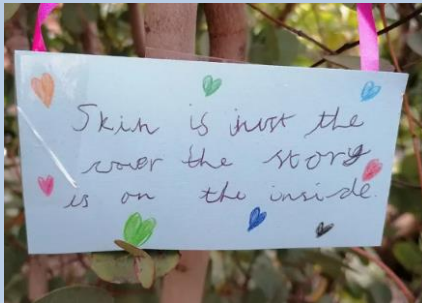 Skin is just the
cover the story
is on the inside.